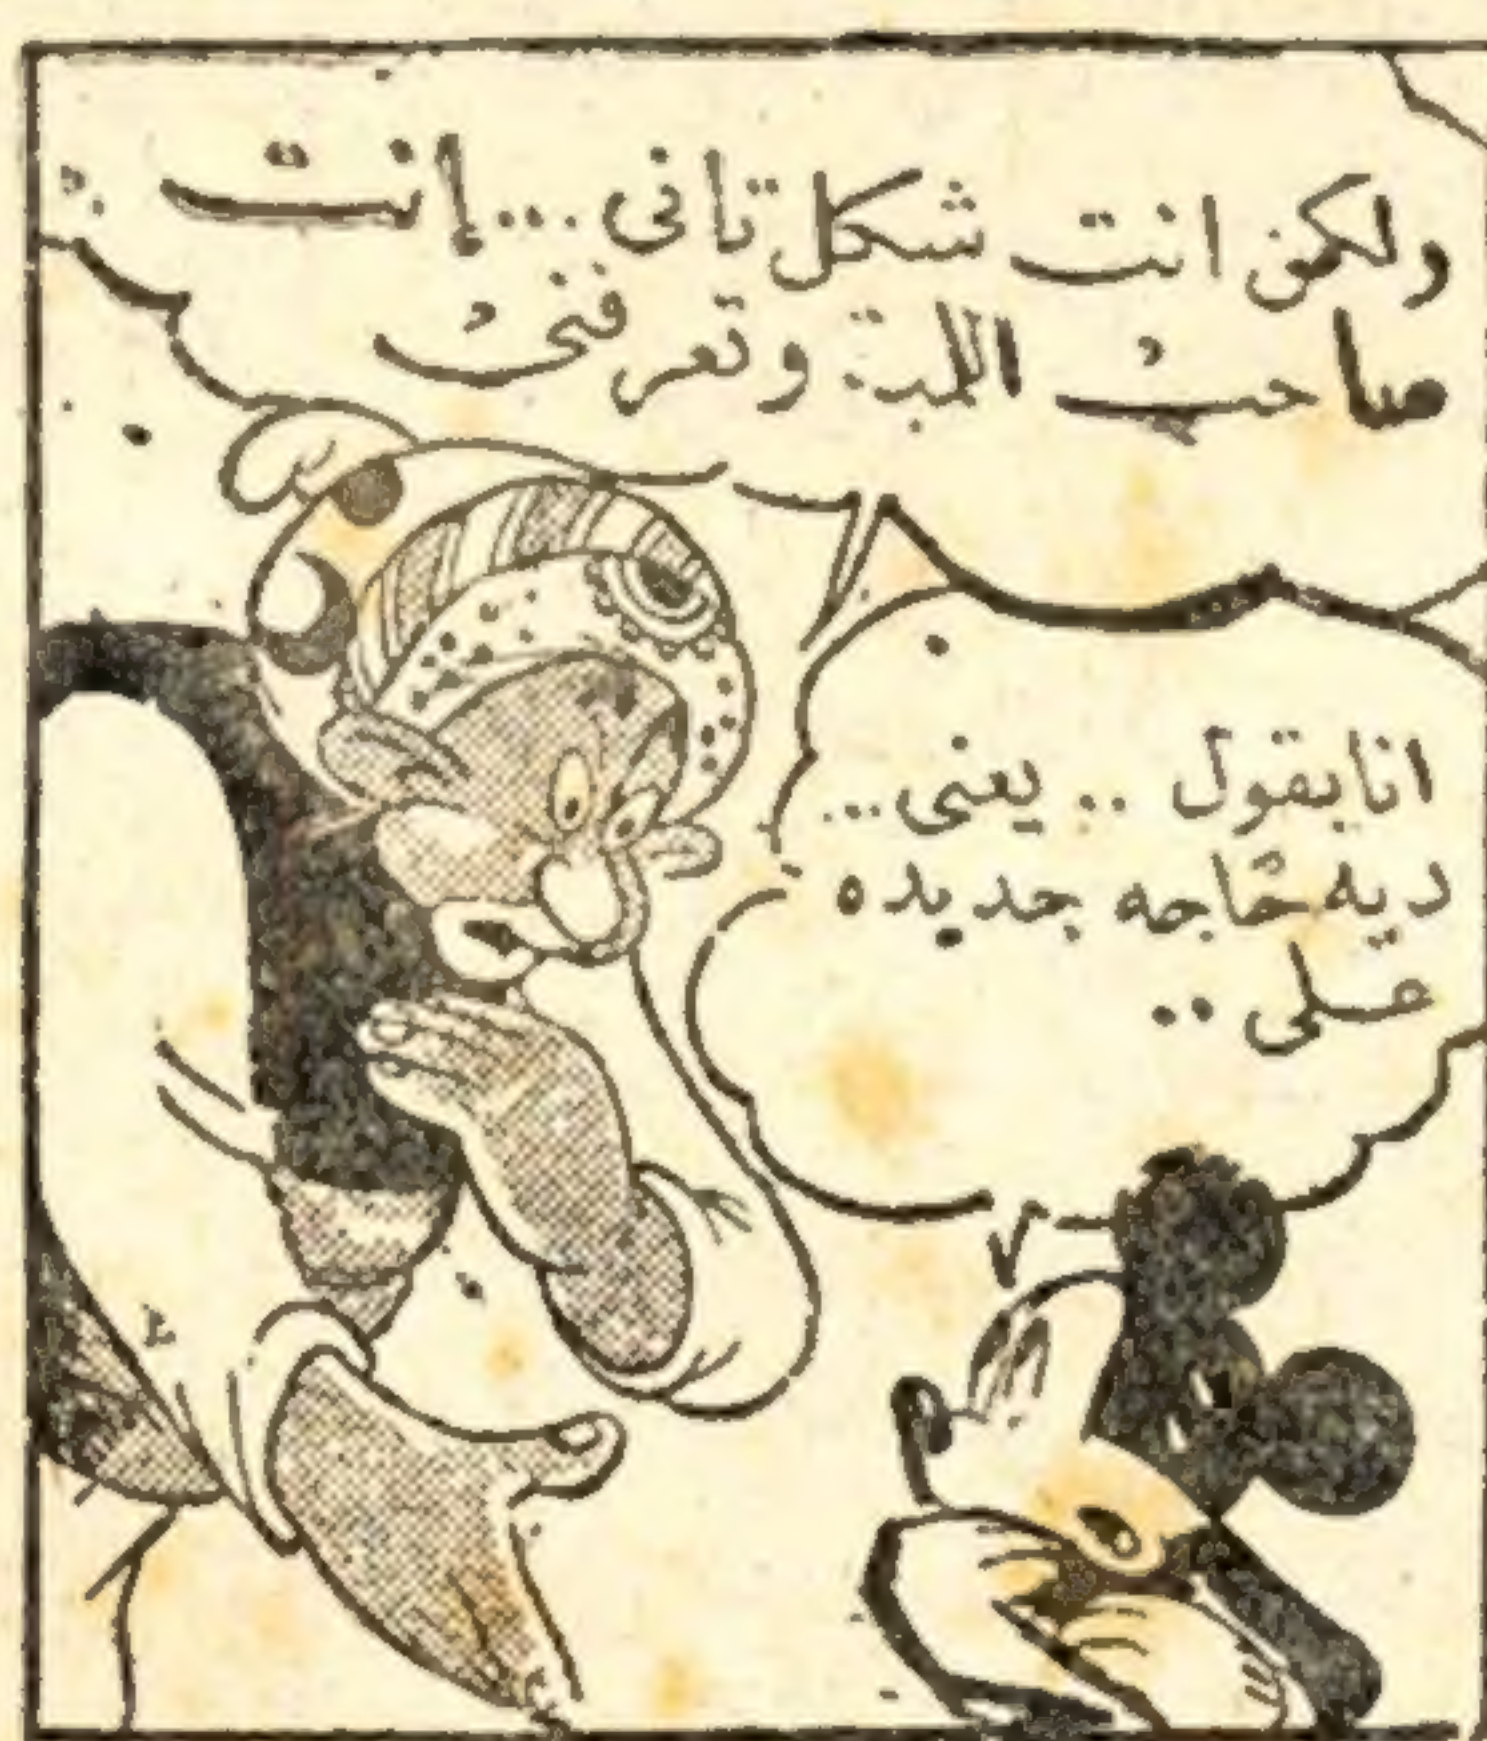 ولكن انت شكل تانى ... إنت
صاحب اللمبة وتعرفنى
انا بقول .. يعنى ...
ديه حاجه جديده
على ..